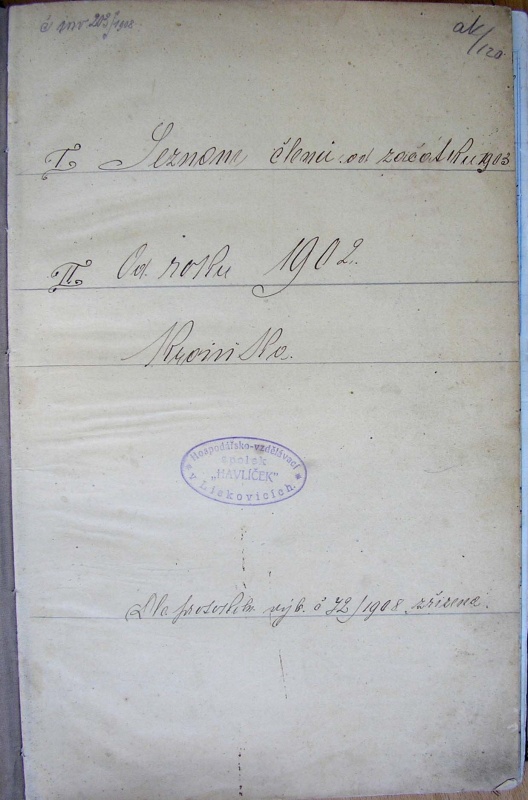 č inv 202/1908
ak/120
I. Seznam členů od začátku 1903
II. Od roku 1902.
Kronika.
Hospodářsko-vzdělávací
spolek
„HAVLÍČEK"
v Lískovicích.
Dle protokolu výb. č 72/1908 zřízena.